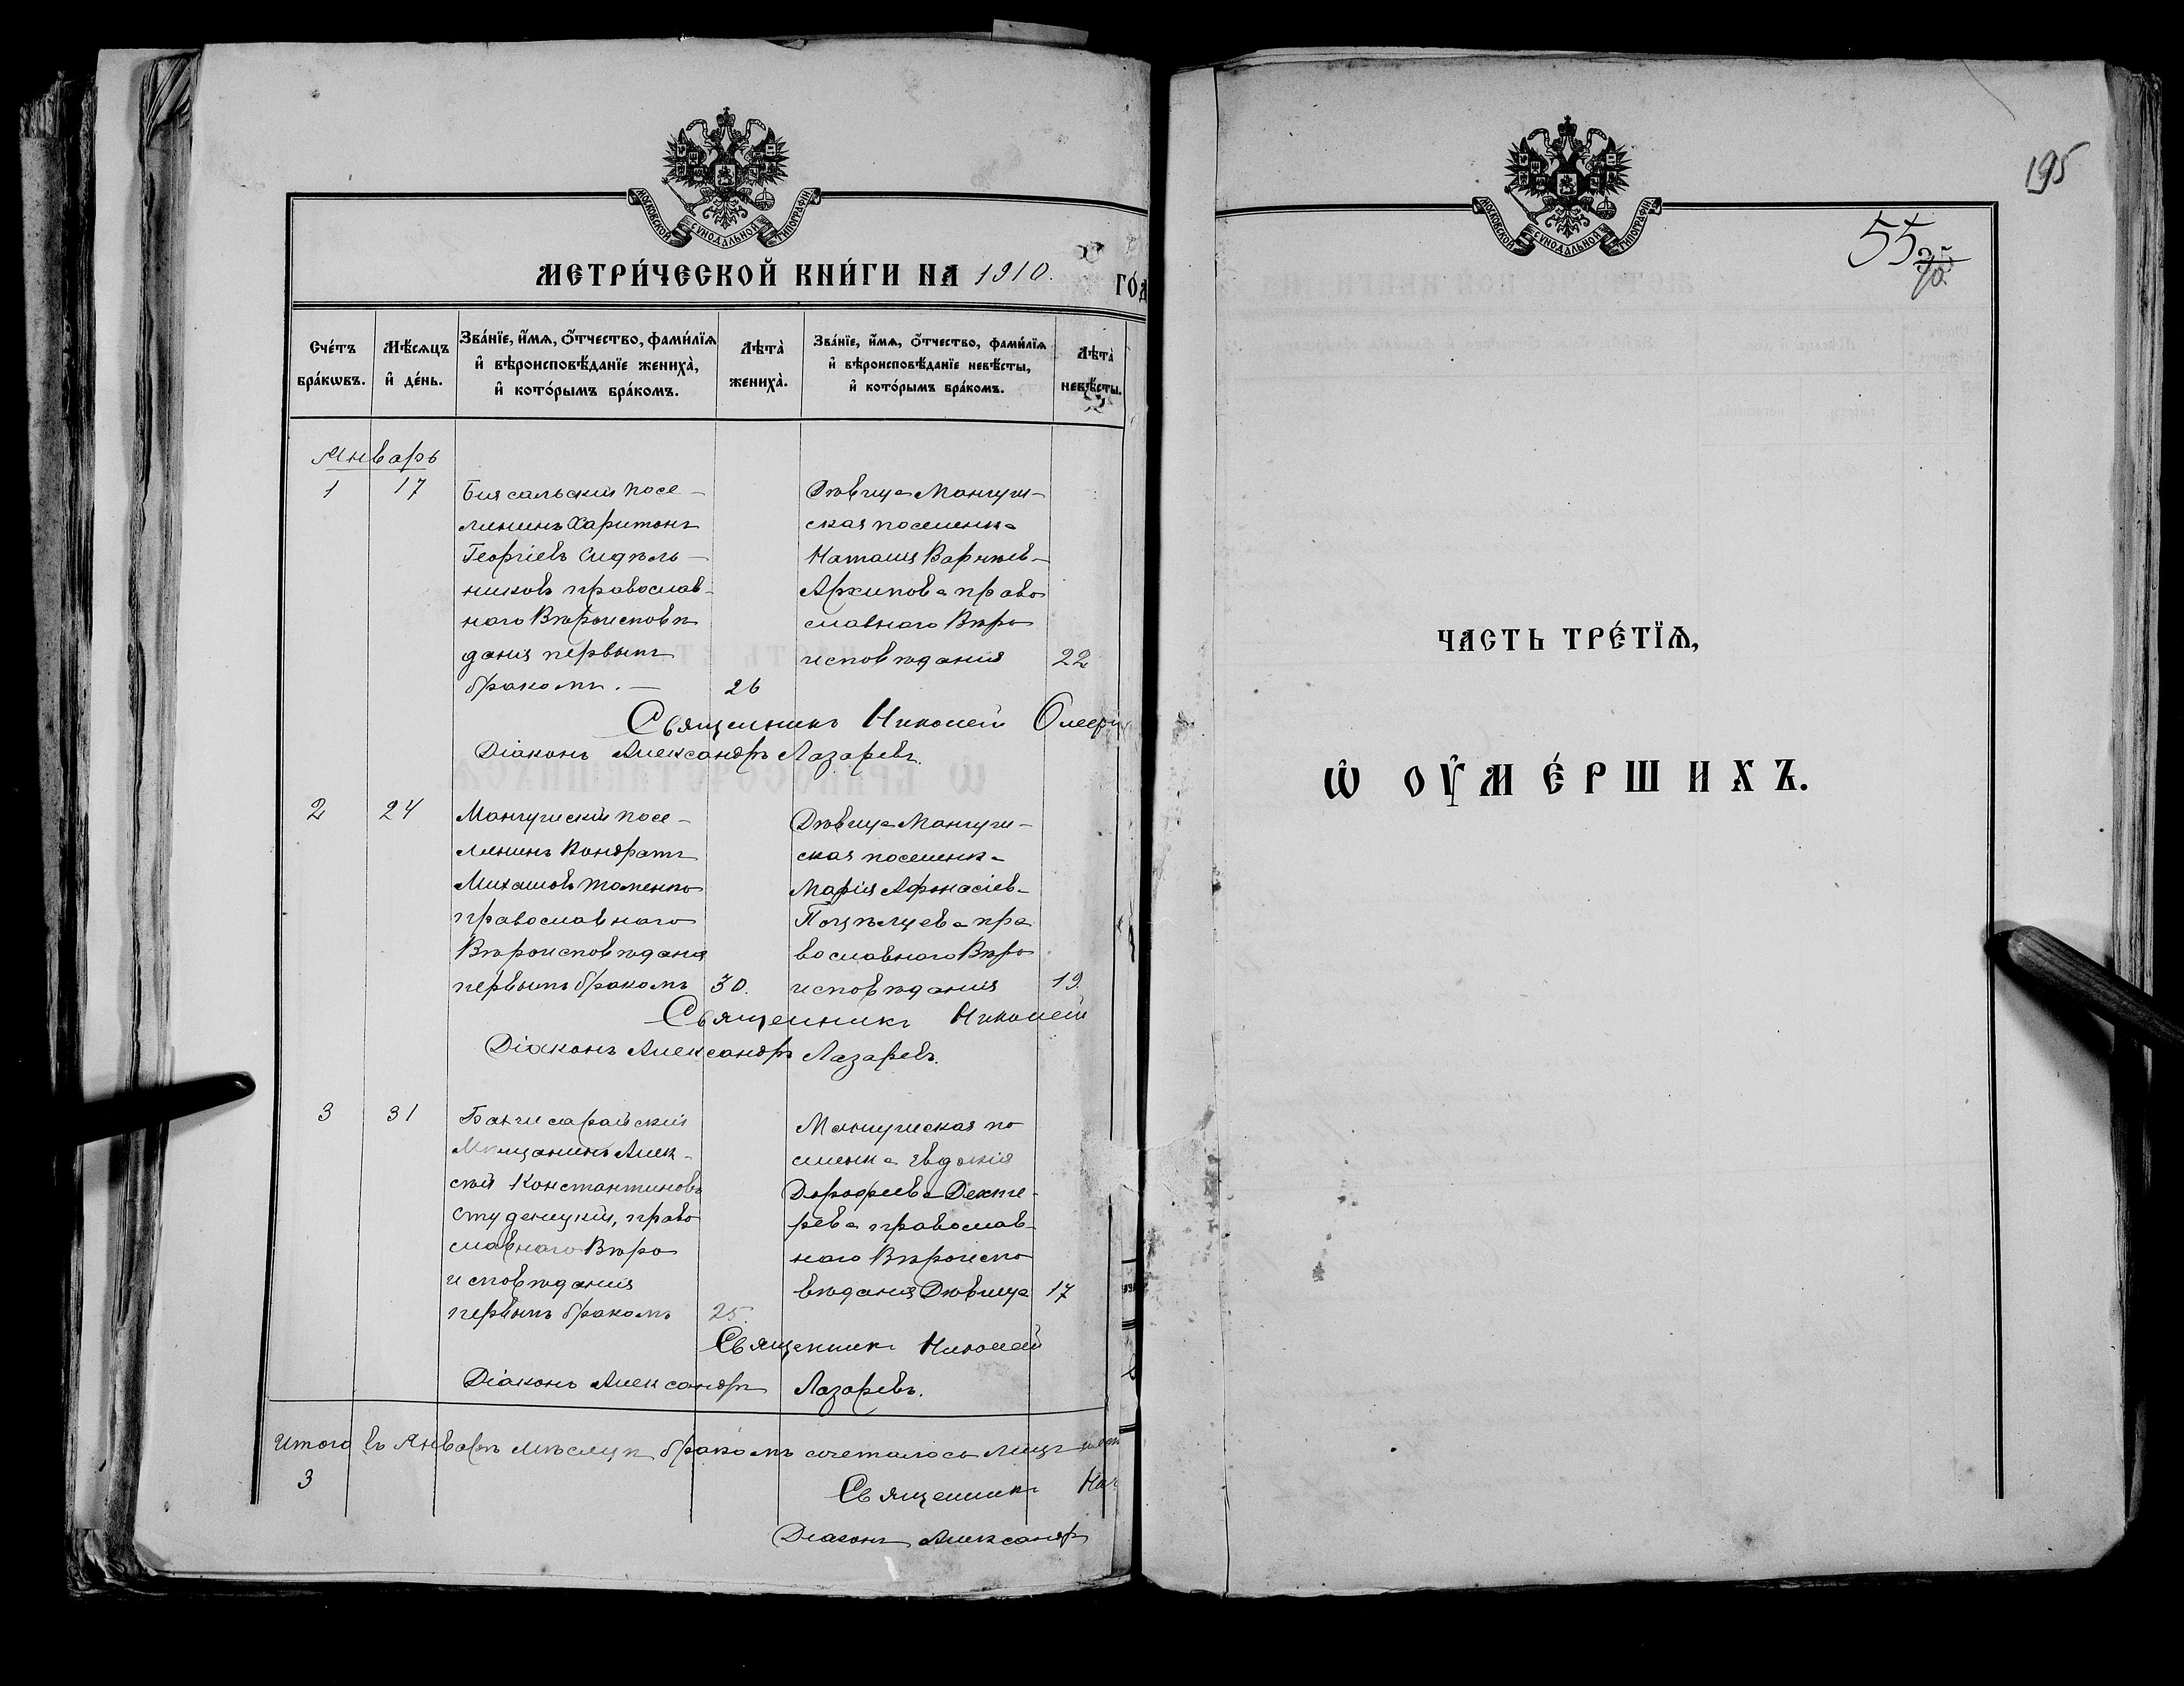 МОСКОВСКОЙ СѴНОДАЛЬНОЙ ТИПОГРАФІИ
МЕТРИ́ЧЕСКОЙ КНИ́ГИ НА 1910. ГО́Д
Сче́тъ бра́кѡвъ.
Мѣ́сяцъ и҆ де́нь.
Зва́нїе, и҆́мѧ, ѻ҆́тчество, фами́лїѧ
и҆ вѣроисповѣ́данїе жениха̀,
и҆ кото́рымъ бра́комъ.
Лѣта̀ жениха̀.
Зва́нїе, и҆́мѧ, ѻ҆́тчество, фами́лїѧ
и҆ вѣроисповѣ́данїе невѣ́сты,
и҆ кото́рымъ бра́комъ.
Лѣта̀ невѣ́сты.
Январь
1 17
Биясальскій посе-
лянинъ Харитонъ
Георгіевъ Сидѣль-
никовъ православ-
наго Вѣроисповѣ
данія первымъ
бракомъ. — 26
Дѣвица Мангуш-
ская поселянка
Наталія
Архипова право
славнаго Вѣро
исповѣданія 22
Священникъ Николай
Діаконъ Александръ Лазаревъ.
2 24
Мангушскій посе-
лянинъ Кондратъ
Михаиловъ Толенко
православнаго
Вѣроисповѣданія
первымъ бракомъ 30.
Дѣвица Мангуш-
ская поселянка
Марія Афонасіев-
Поцѣлуева пра
вославнаго Вѣро
исповѣданія 19.
Священникъ Николай
Діаконъ Александръ Лазаревъ.
3 31
Бахчисарайскій
Мѣщанинъ Алек-
сѣй Константиновъ
Студеницкій, право
славнаго Вѣро
исповѣданія
первымъ бракомъ 25.
Мангушская по
селянка Евдокія
Дорофеева Дехте-
рева православ-
наго Вѣроиспо
вѣданія Дѣвица 17
Священникъ Николай
Діаконъ Александръ Лазаревъ.
Итого въ Январѣ мѣсяцѣ бракомъ сочеталось лицъ
3
Священникъ
Діаконъ Александр
МОСКОВСКОЙ СѴНОДАЛЬНОЙ ТИПОГРАФІИ
195
55
ЧАСТЬ ТРЕ́ТЇѦ,
Ѡ҆ ОУ҆МЕ́РШИХЪ.